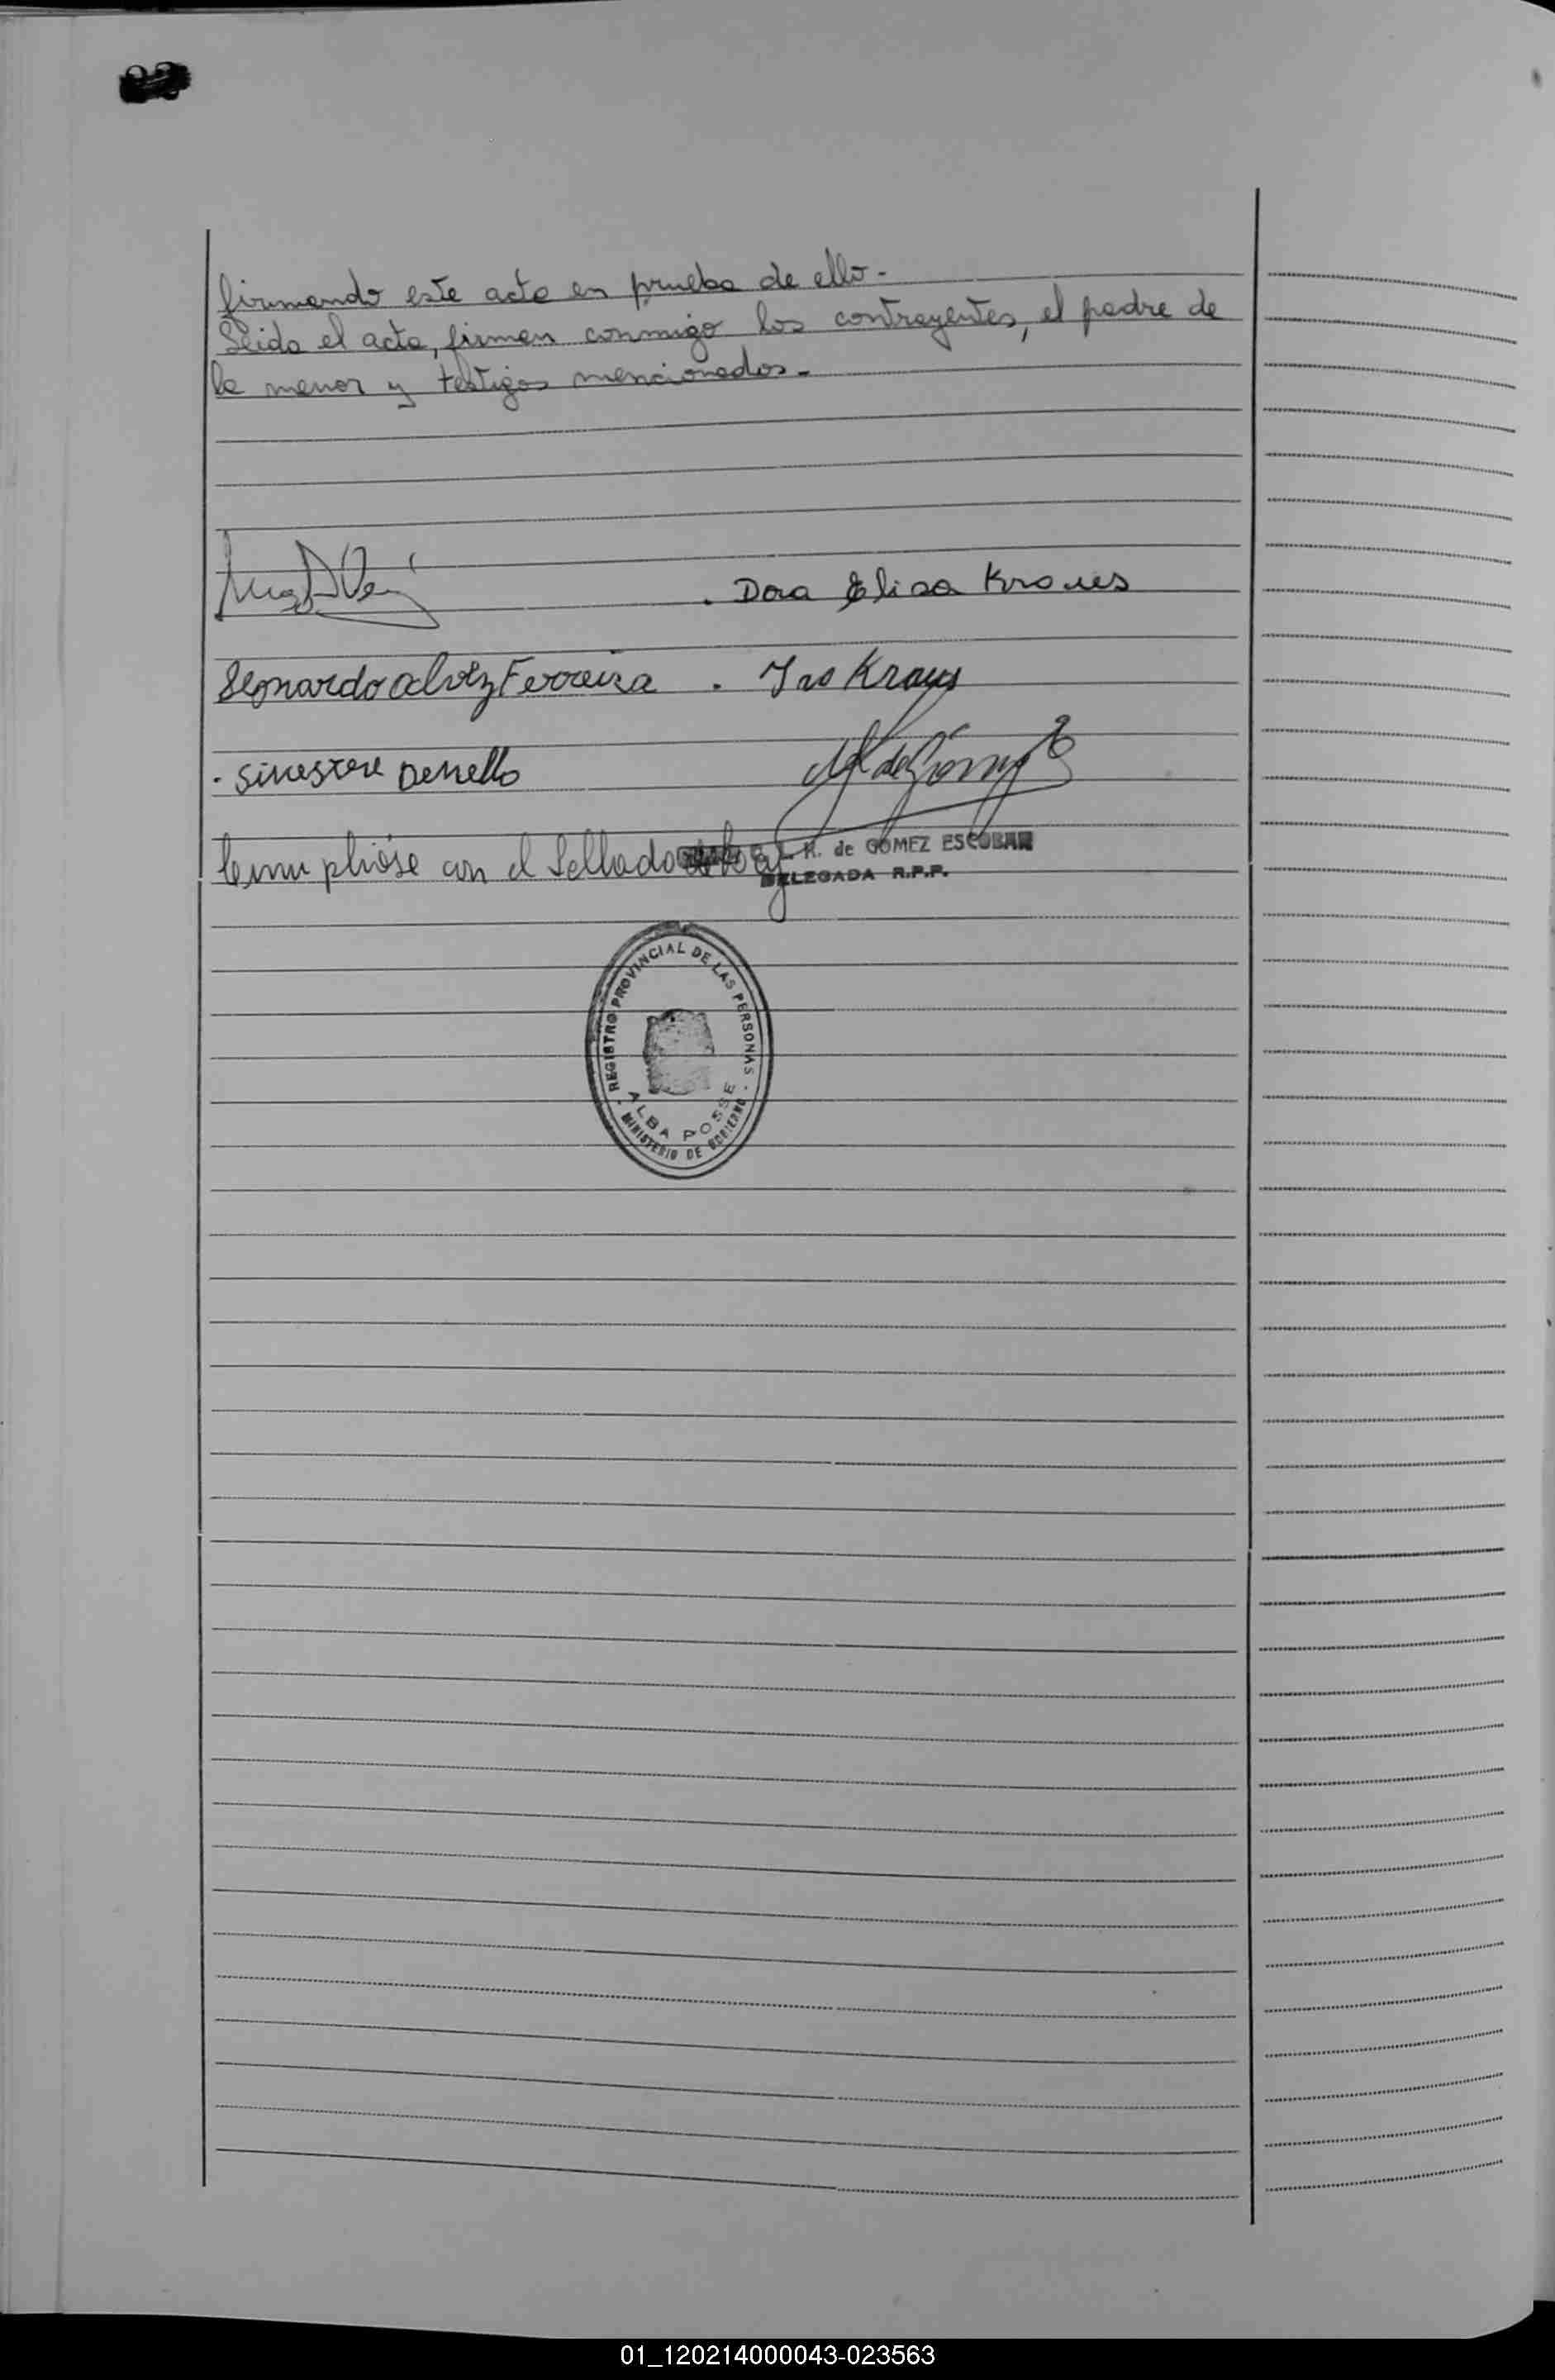 firmando este acto en prueba de ello.-
Leida el acta, firman conmigo los contrayentes, el padre de
la menor y testigos mencionados.-
. Dora Elisa Kraues
Leonardo Alvez Ferreira . Ivo Kraus
. Silvestre Dernello
Cumpliose con el Sellado de ley
R. de GOMEZ ESCOBAR
DELEGADA R.P.P.
REGISTRO PROVINCIAL DE LAS PERSONAS -
ALBA POSSE
MINISTERIO DE GOBIERNO
01_120214000043-023563